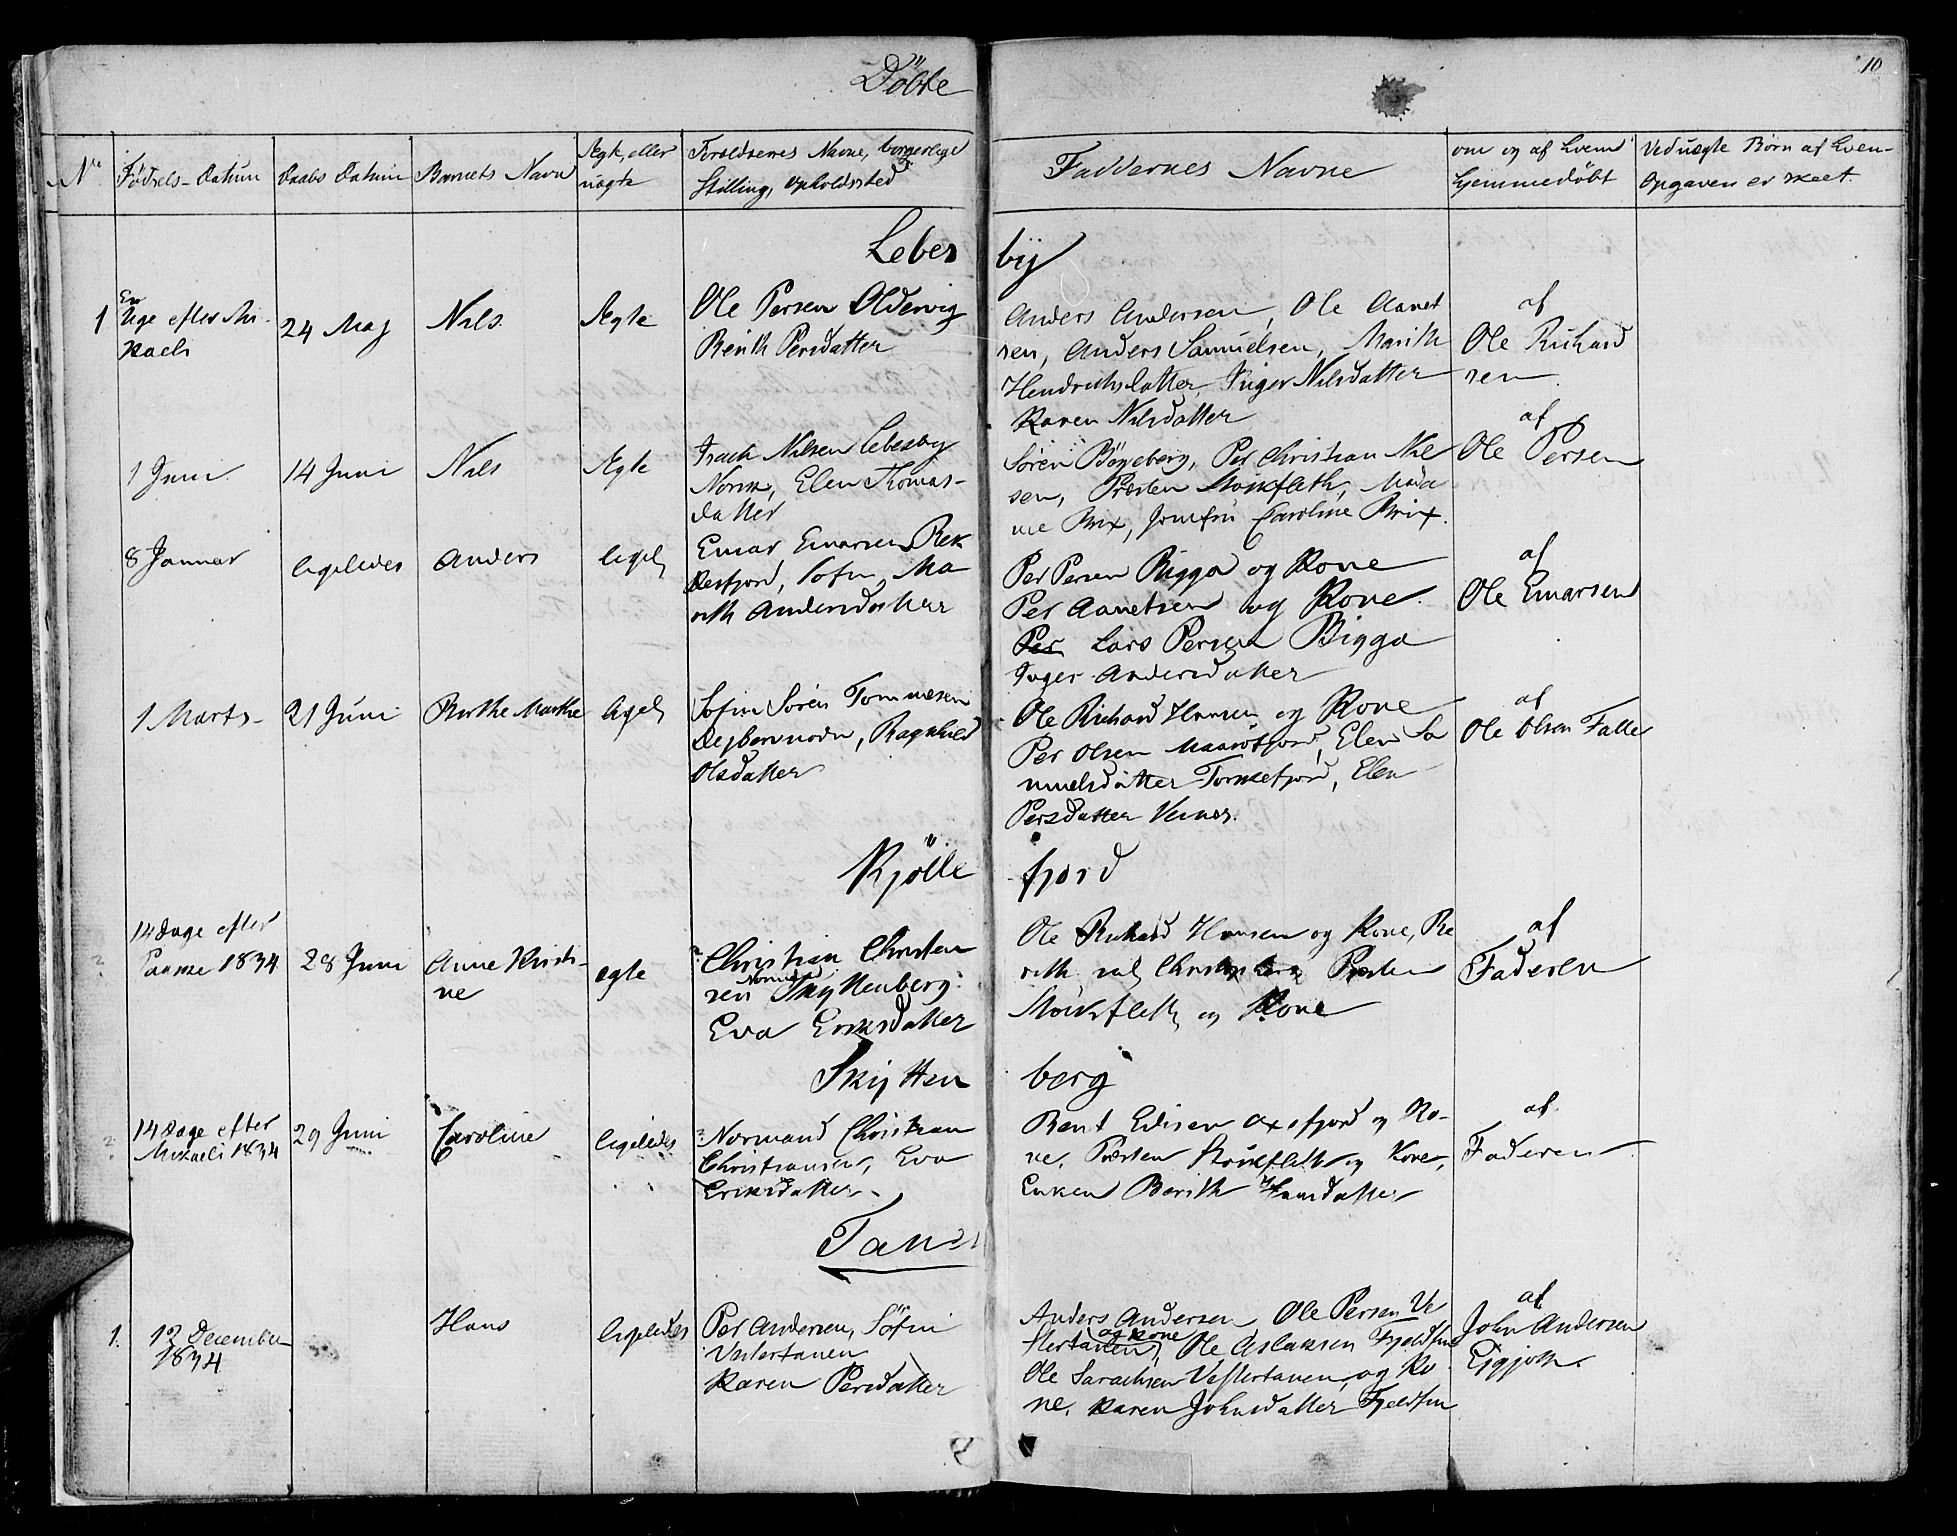 Döbte
10
No
Födsels-Datum
Daabs Datum
Barnets Navn
Ægte, eller
uægte
Forældrenes Navne, borgerlige
Stilling, Opholdssted
Faddernes Navne
om og af hvem
hjemmedöbt
Ved uægte Börn af hvem
Opgaven er skeet.
Lebes
by
1
En
Uge efter Mi-
kaeli
24 Maj
Nils
Ægte
Ole Persen Oldervig
Berith Persdatter
Anders Andersen, Ole Aanet
sen, Anders Samuelsen, Marith
Hendrichsdatter, Inger Nilsdatter
Karen Nilsdatter
af
Ole Richard
sen
1 Juni
14 Juni
Nils
Ægte
Isach Nilsen Lebesby
Norsk, Elen Thomas-
datter
Sören Bögeberg, Per Christian Niel
sen, Præsten Stockfleth, Mada
me Brix, Jomfru Caroline Brix.
af
Ole Persen
8 Januar
ligeledes
Anders
ligel
Einar Einarsen Bek
kesfjord, Sofin, Ma
rith Andersdatter
Per Persen Bigga og Kone
Per Aanetsen og Kone
Per Lars Persen Bigga
Inger Andersdatter
af
Ole Einarsen
1 Marts
21 Juni
Birthe Marthe
ligel
Sofin Sören Tommesen
Olsdatter
Ole Richard Hansen og Kone
Per Olsen, Elen Sa
muelsdatter Torskefjord, Elen
Persdatter
af
Ole Olsen Falle
Kjölle
fjord
14 Dage efter
Paaske 1834
28 Juni
Anne Kirsti-
ne
ægte
Christian Christen
sen Nomand Skjøttenberg
Eva Eriksdatter
Ole Richard Hansen og Kone, Be
rith Præsten
Stockfleth og Kone
af
Faderen
Skjötten
berg
14 Dage efter
Mikaeli 1834
29 Juni
Caroline
ligeledes
Normand Christian
Christiansen, Eva
Eriksdatter
Bent Edisen Axefjord og Ko-
ne, Præsten Stockfleth og Kone,
Enken Berith Hansdatter
af
Faderen
Tanen
1.
12 December
1834
Hans
ligeledes
Per Andersen, Söfin
Vestertanen
Karen Persdatter
Anders Andersen Ole Persen Ve
stertanen og Kone, Ole Aslaksen Fjeldfin
Ole Sarachsen Vestertanen og Ko
ne, Karen Johnsdatter Fjeldfin
af
John Andersen